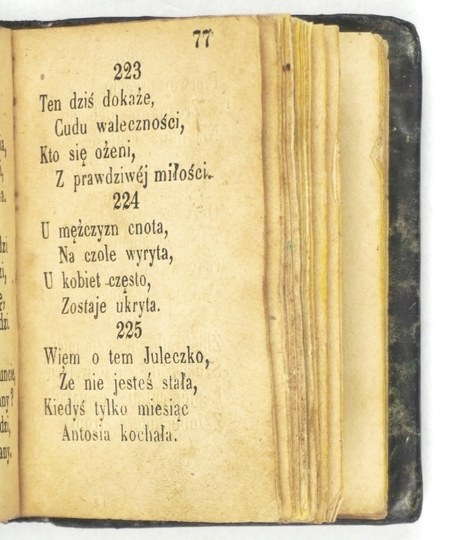 77
223
Ten dziś dokaże,
Cudu waleczności,
Kto się ożeni,
Z prawdziwéj miłości.
224
U mężczyzn cnota,
Na czole wyryta,
U kobiet często,
Zostaje ukryta.
225
Wiem o tem Juleczko,
Że nie jesteś stała,
Kiedyś tylko miesiąc
Antosia kochała.